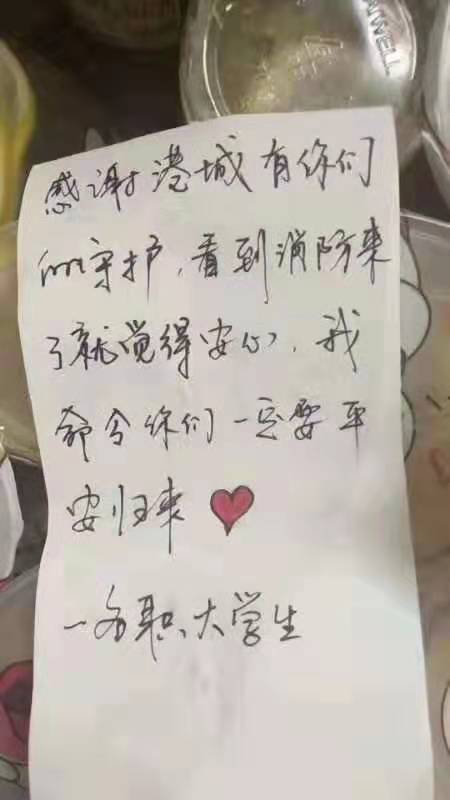 AIWELL
感谢港城有你们
的守护，看到消防来
了就觉得安心，我
命令你们一定要平
安归来
一名职大学生